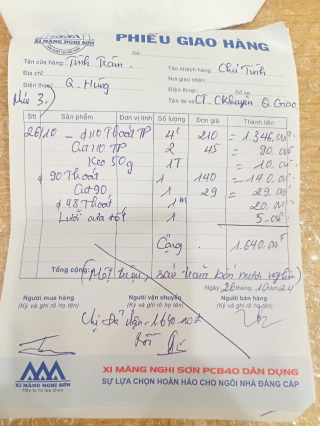 PHIẾU GIAO HÀNG
XI MĂNG NGHI SƠN
Số:
Tên cửa hàng: Tình Trâm
Tên khách hàng: Chú Tình
Địa chỉ:
Nơi giao nhận:
Điện thoại: Q. Hùng
Điện thoại: Số xe:
Tên lái xe: CT. CKhuyen Q Giao
Stt Sản phẩm Đơn vị tính Số lượng Đơn giá Thành tiền
26/10 - ϕ110 Thoát TP 4c 210 = 1.346.000đ
Cut 110 TP 2 45 = 90.000
Keo 50g 1T = 10.000
ϕ 90 Thoát 1 140 = 140.000
Cut 90 1 29 = 29.000
ϕ 48 Thoát 1m 20.000
Lưỡi cưa tốt 1 5.000
Cộng 1.640.000đ
Tổng cộng: (Một triệu, sáu trăm bốn mươi nghìn)
Ngày 26 tháng 10 năm 24
Người mua hàng Người vận chuyển Người bán hàng
(Ký và ghi rõ họ tên) (Ký và ghi rõ họ tên) (Ký và ghi rõ họ tên)
XI MĂNG NGHI SƠN PCB40 DÂN DỤNG
SỰ LỰA CHỌN HOÀN HẢO CHO NGÔI NHÀ ĐẲNG CẤP
XI MĂNG NGHI SƠN